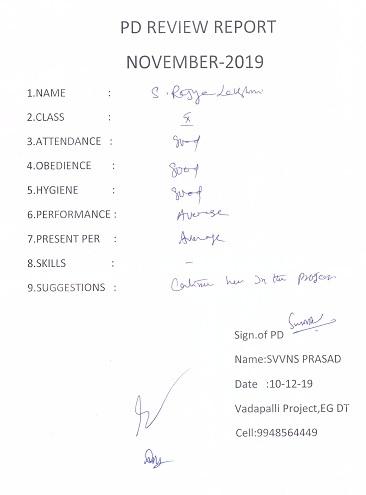 PD REVIEW REPORT
NOVEMBER-2019
1.NAME : S. Rajya Lakshmi
2.CLASS :
3.ATTENDANCE : good
4.OBEDIENCE : good
5.HYGIENE : good
6.PERFORMANCE : Average
7.PRESENT PER : Average
8.SKILLS : -
9.SUGGESTIONS : Continue her in the project
Sign.of PD
Name:SVVNS PRASAD
Date :10-12-19
Vadapalli Project,EG DT
Cell:9948564449